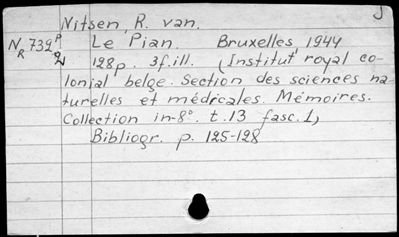 J
Nitsen, R. van.
NR 739P2 Le Pian. Bruxelles 1944
128p. 3f.ill. (Institut royal co-
lonial belge. Section des sciences na
turelles et médicales. Mémoires.
Collection in-8°. t.13 fasc.1)
Bibliogr. p. 125-128